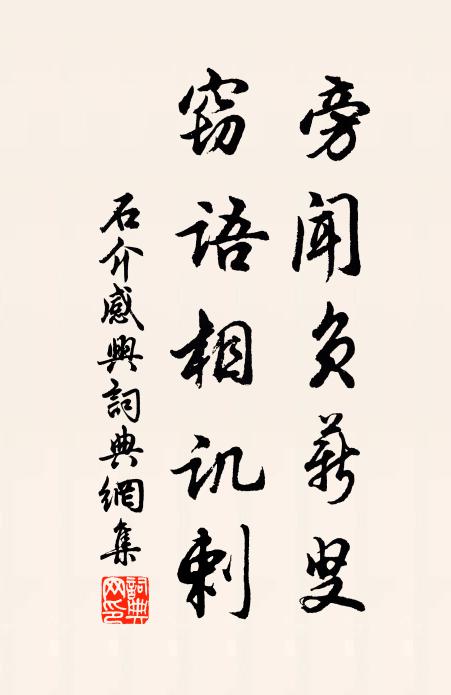 旁闻负薪叟
窃语相讥刺
石介感興詞典網集
詞典
网印